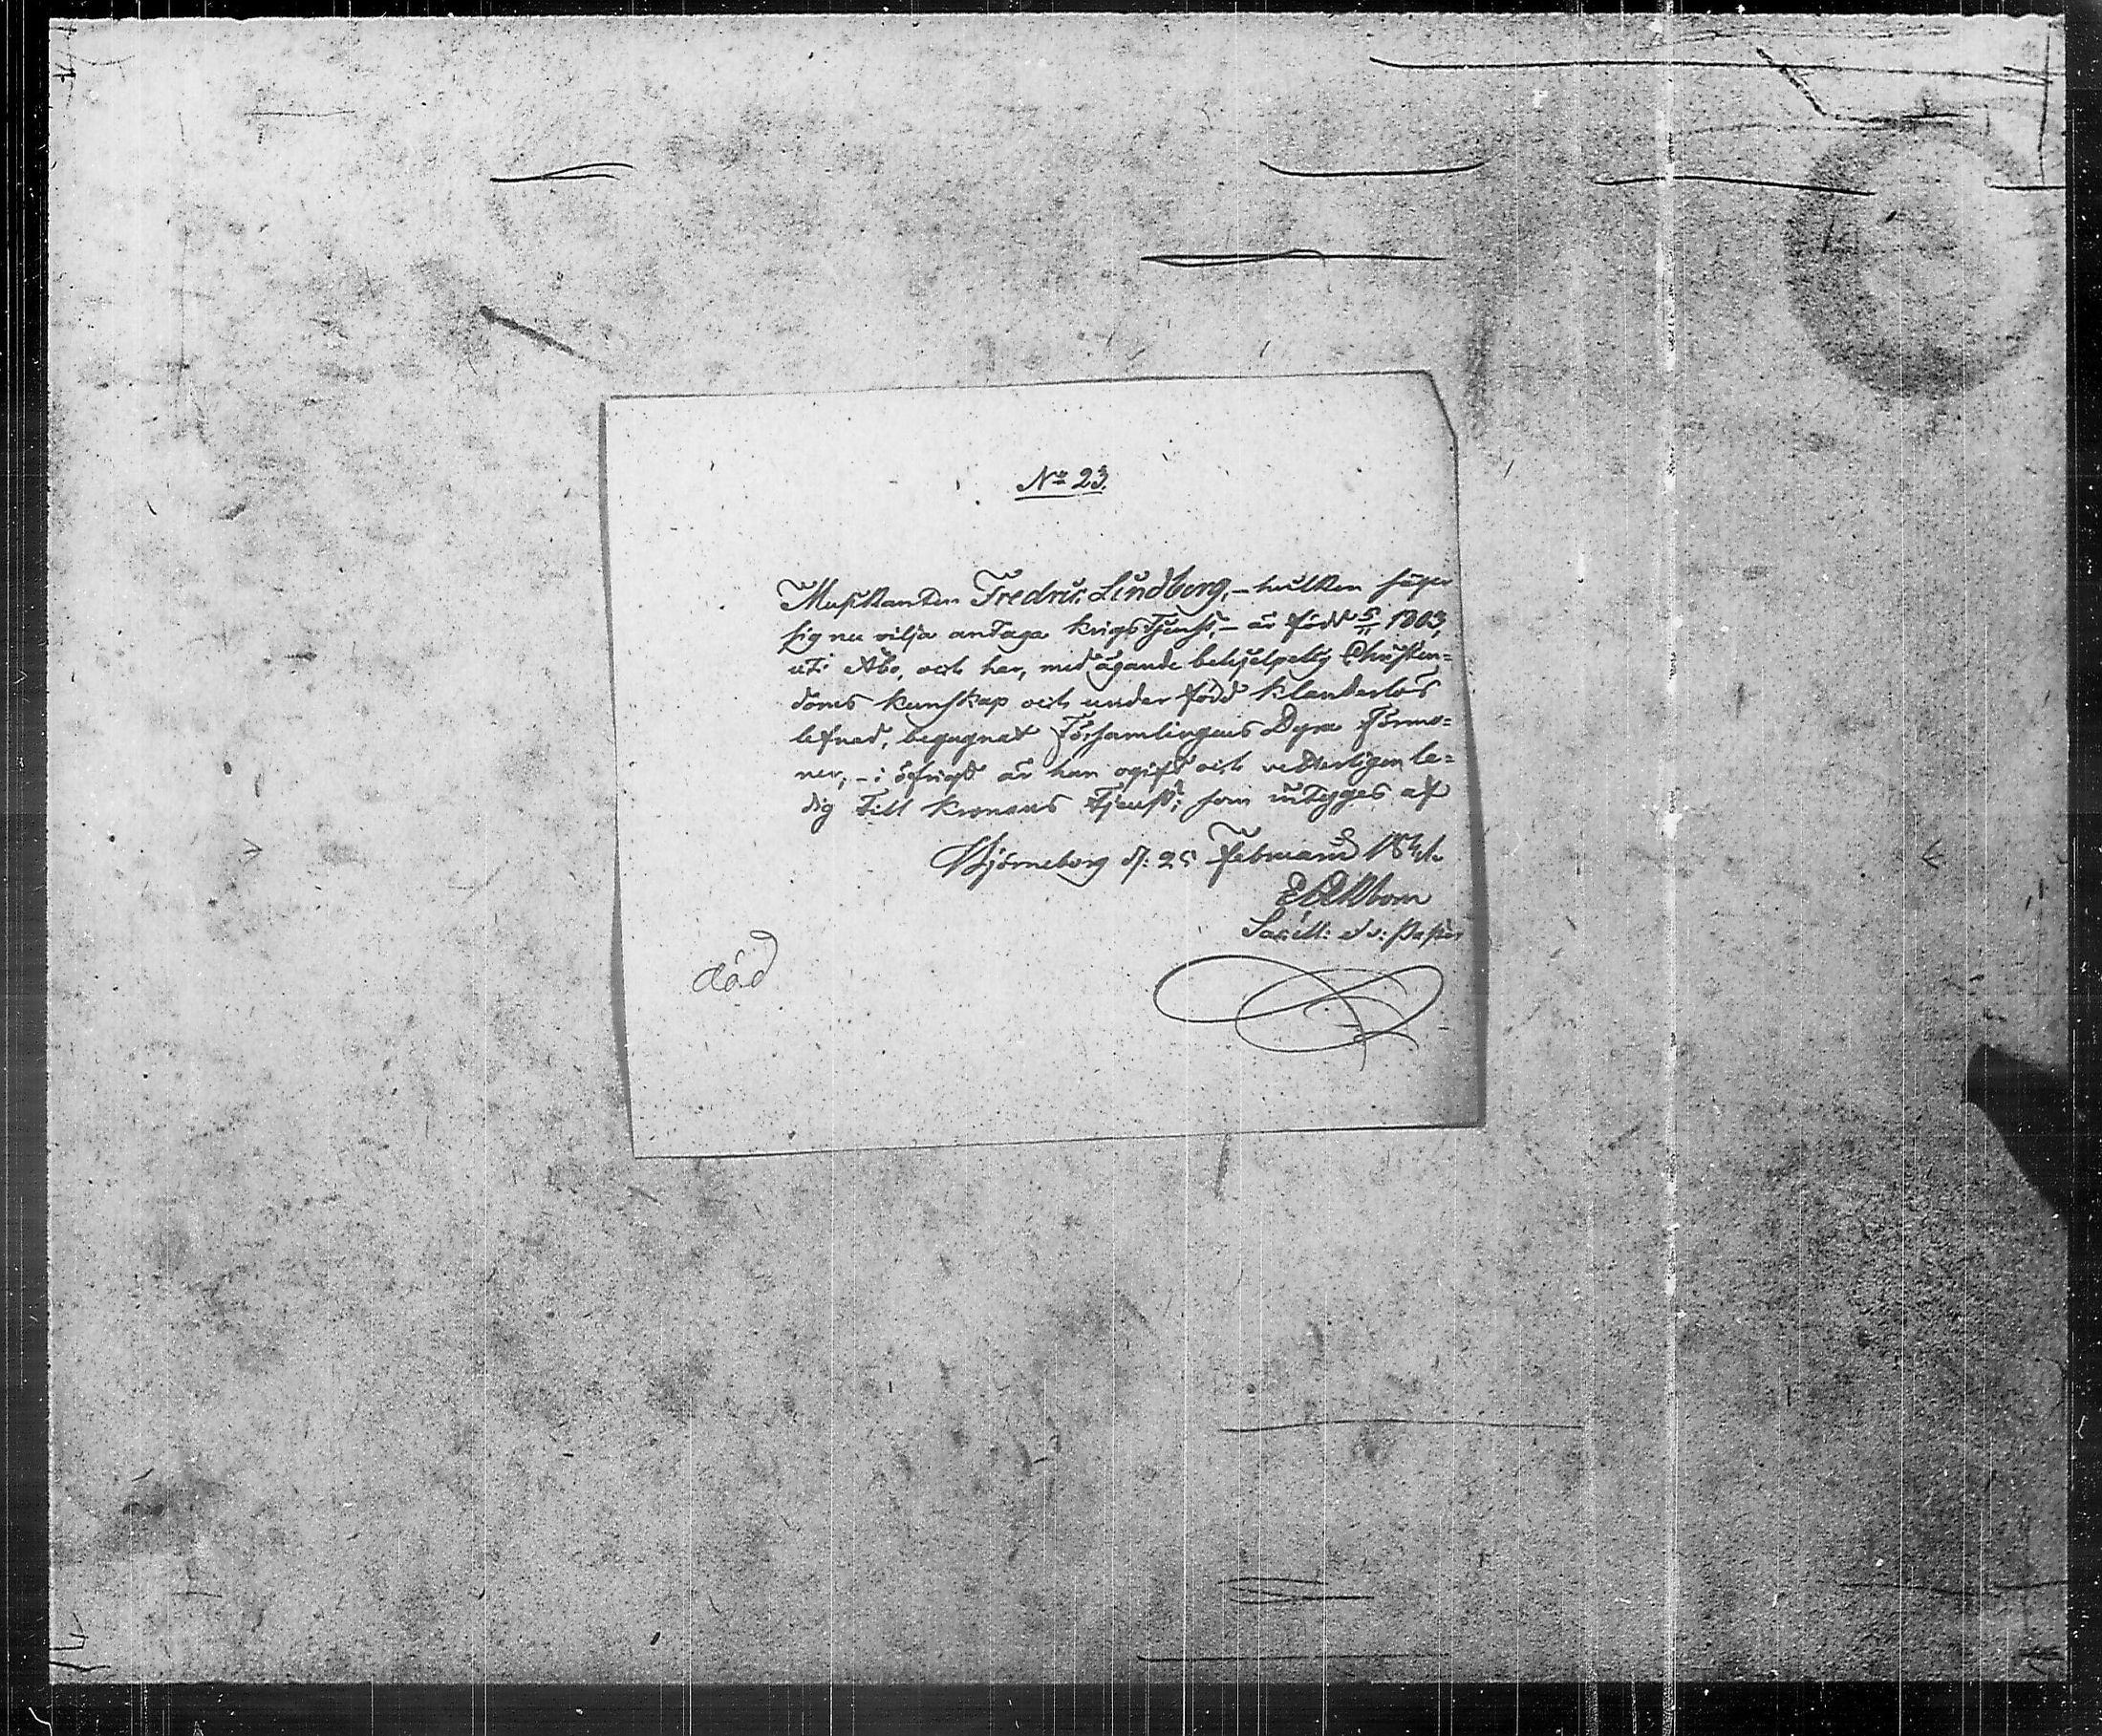 No 23.
Musikanten Fredric Lindberg, – hvilken säger
sig nu vilja antaga krigstjenst, – är född 5/11 1803,
uti Åbo, och har, med ägande behjelpelig Christen=
doms kunskap och under förd klanderlös
lefnad, begagnat Församlingens Dyra Förmo=
ner, – i öfrigt är han ogift och vederbörligen le=
dig till Kronans tjenst; som intygges af
Björneborg d: 25 Februarii
Sac:
död